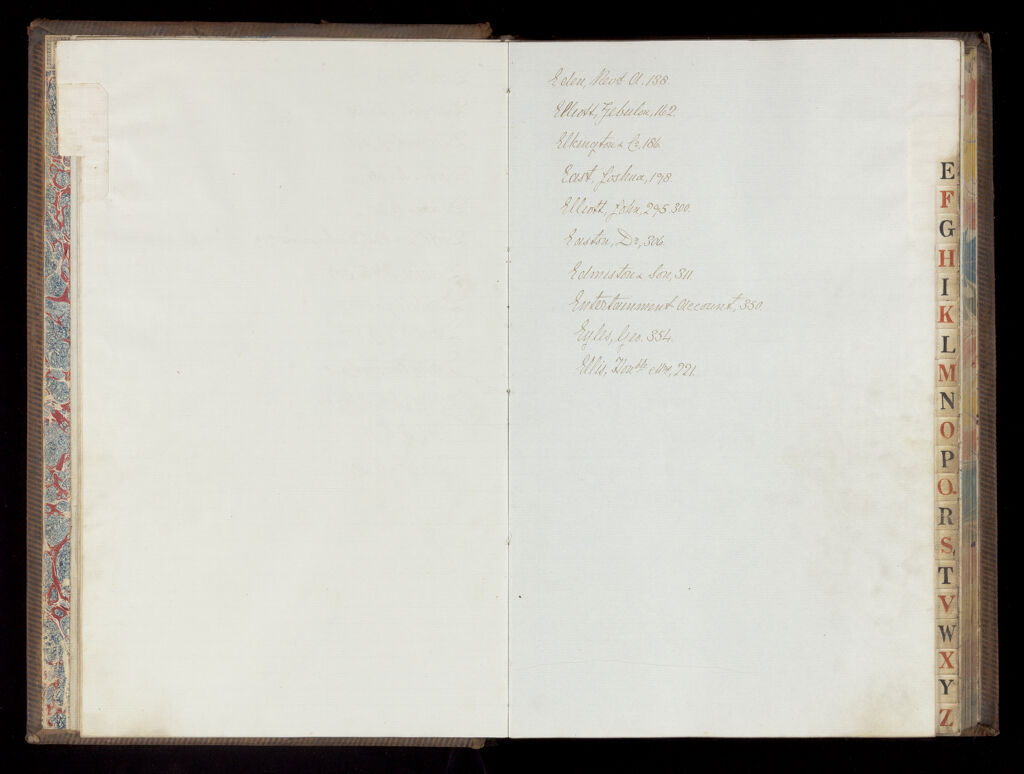 Eden, Revd A. 138.
Elliott, Zebulon, 162.
Elkington & Co, 186.
East, Joshua, 198.
Elliott, John, 295. 300.
Easton, Dr, 306.
Edmiston & Son, 311.
Entertainment Account, 350.
Eyles, Geo. 354.
Ellis, Honble Mr, 221.
E
F
G
H
I
K
L
M
N
O
P
Q.
R
S
T
V
W
X
Y
Z